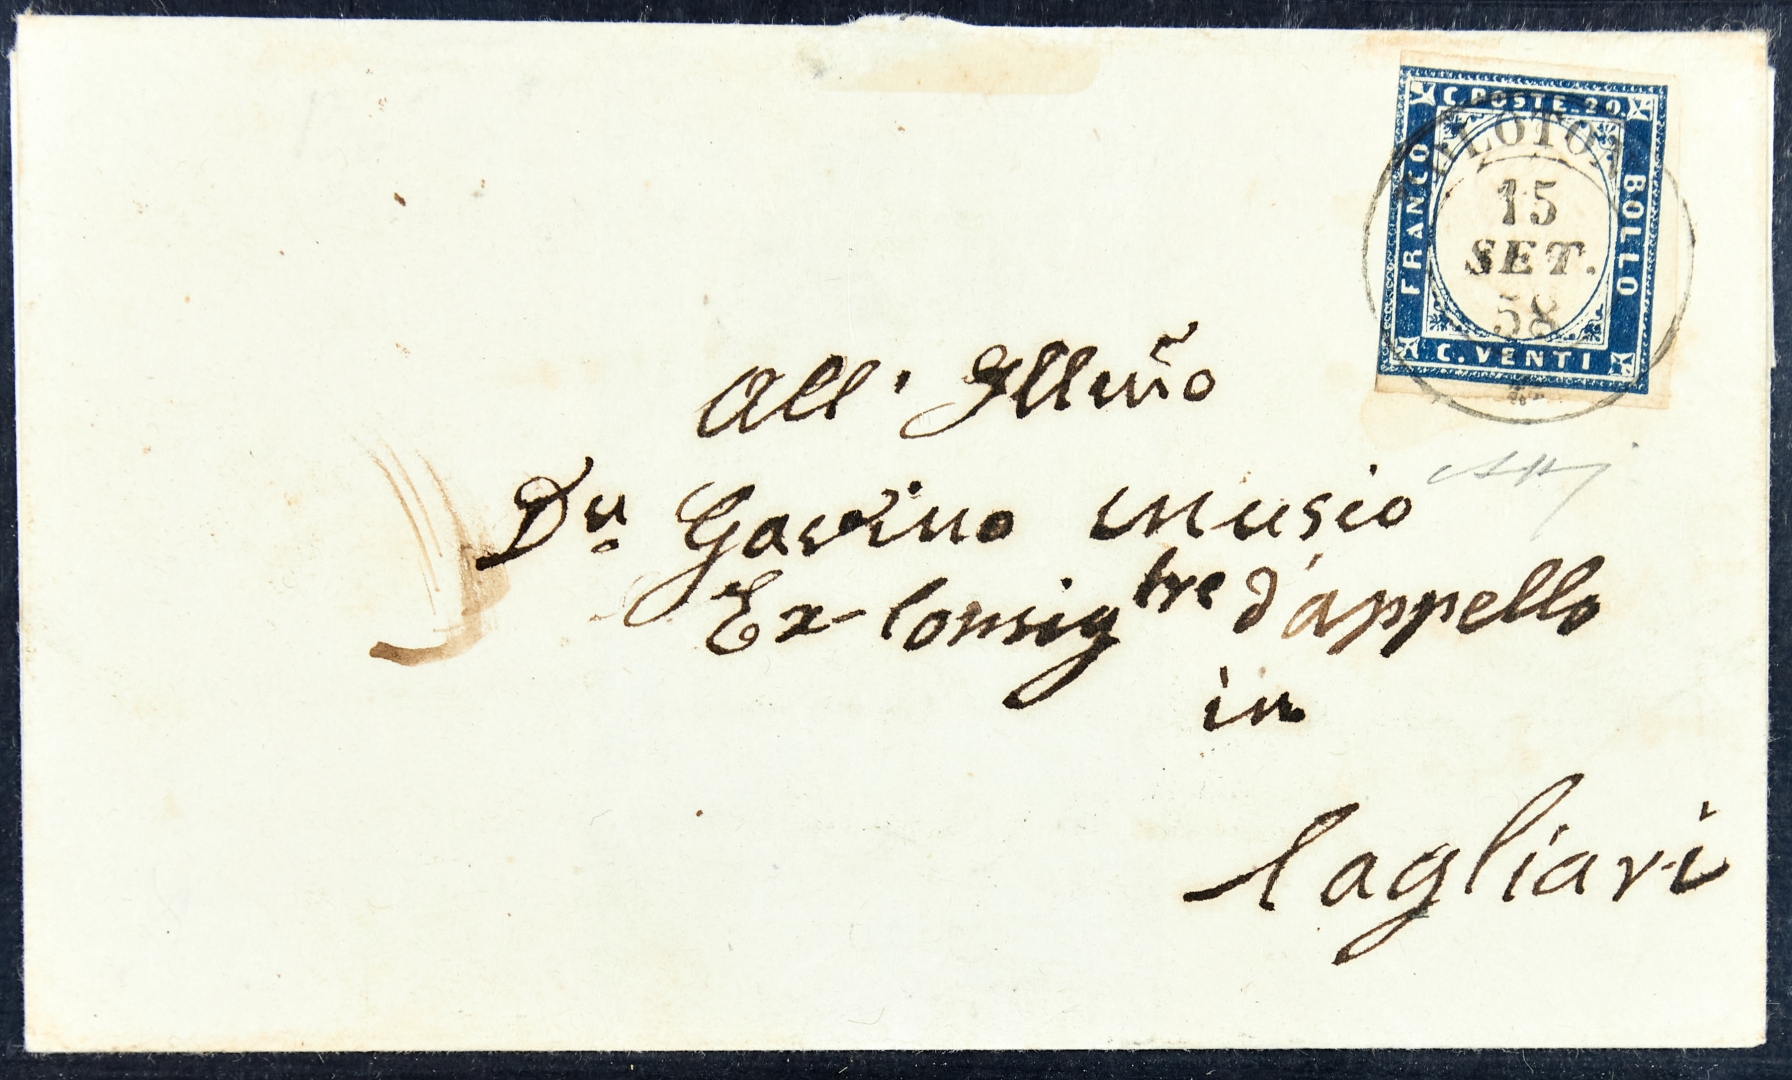 C. POSTE. 20.
FRANCO
BOLLO
C. VENTI
15
SET.
58
All' Illmo
Dn Gavino Musio
Ex-Consigtre d'appello
in
Cagliari